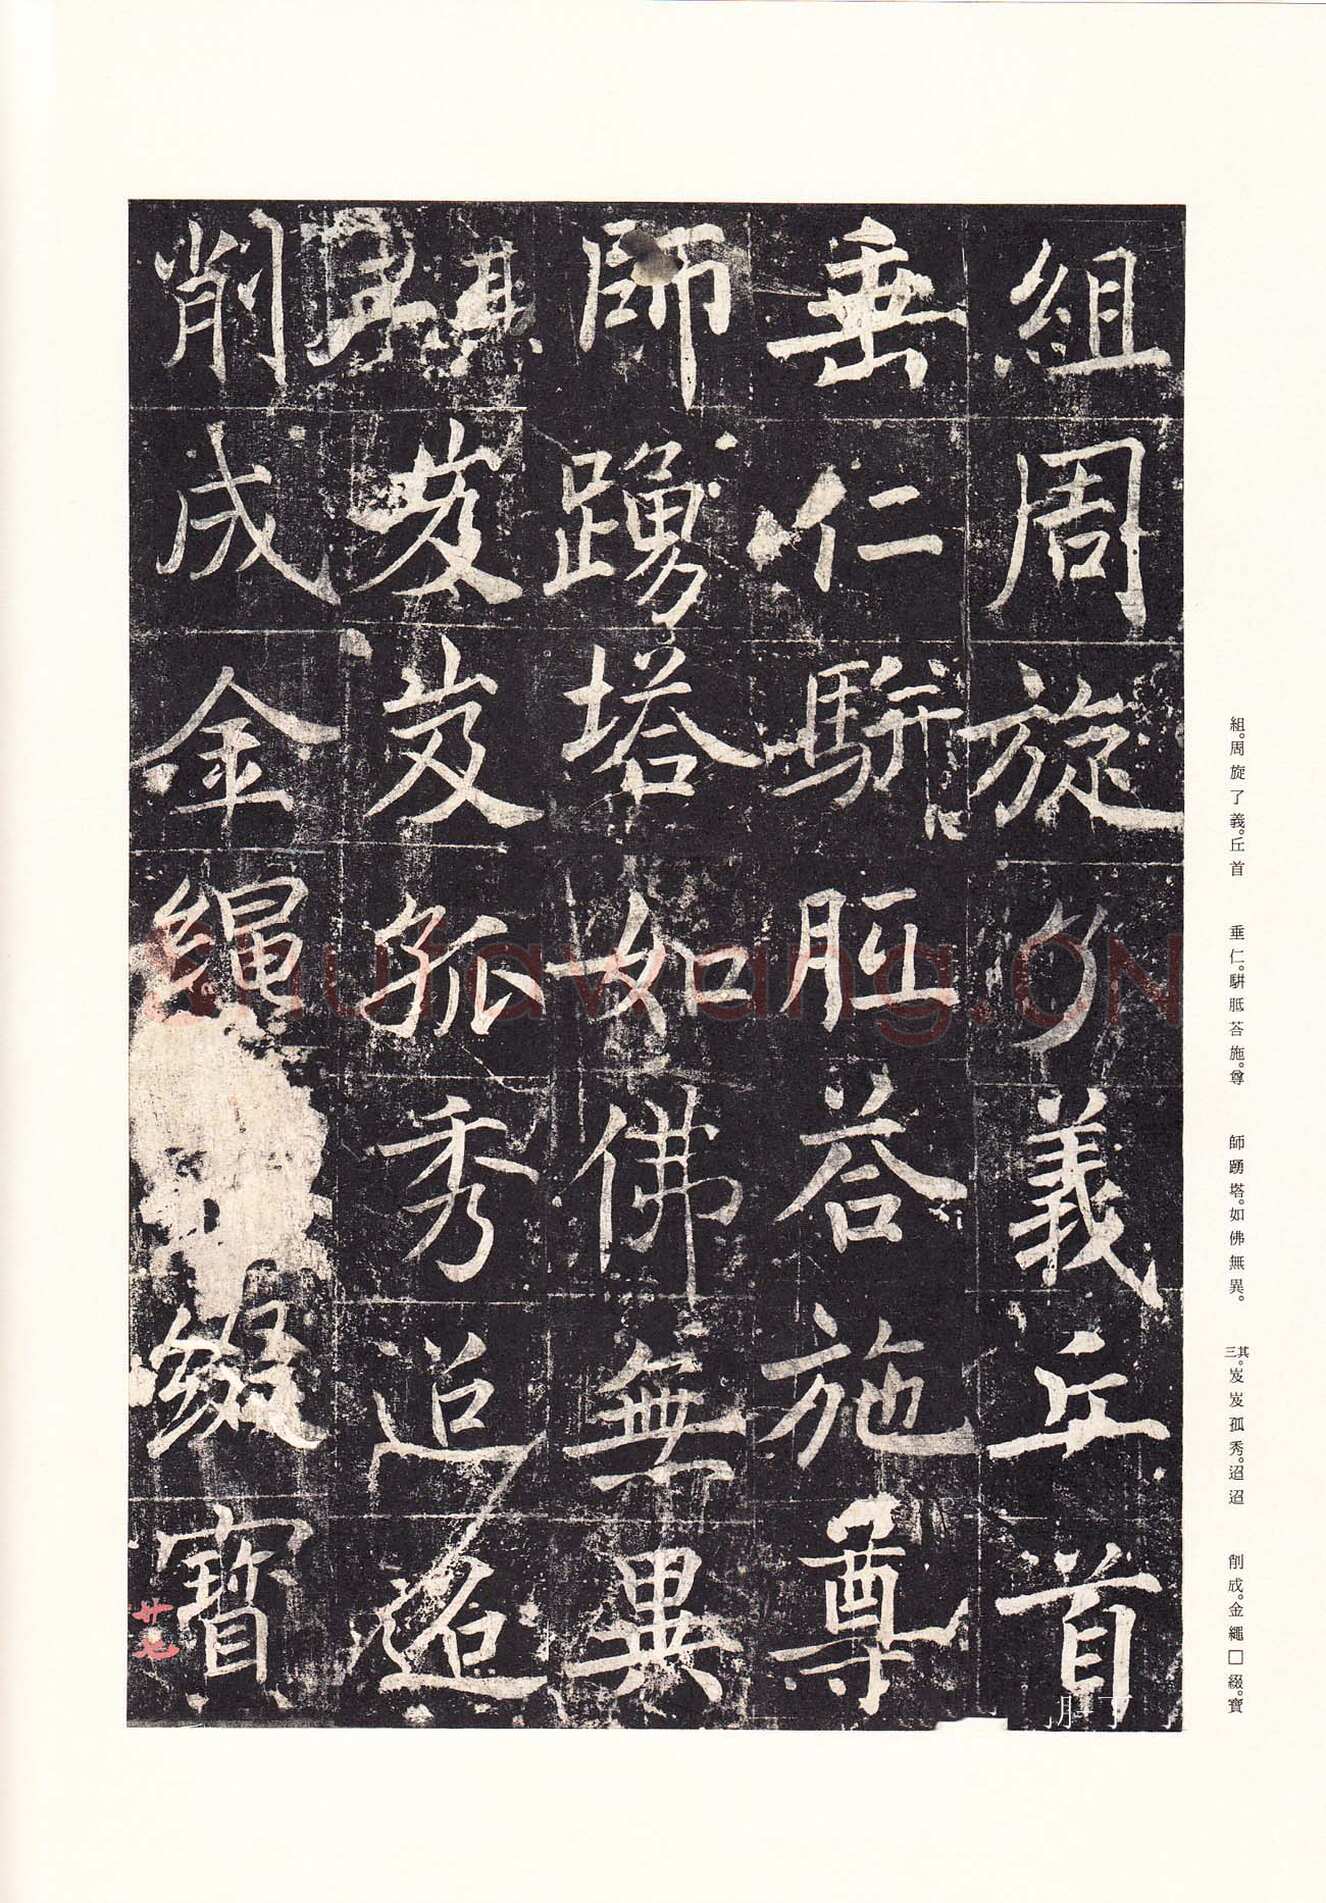 組周旋了義丘首
垂仁駢胝荅施尊
師踴塔如佛無異
其三岌岌孤秀迢迢
削成金繩綴寶
廿七
組。周旋了義。丘首
垂仁。駢胝荅施。尊
師踴塔。如佛無異。
其三。岌岌孤秀。迢迢
削成。金繩□綴。寶
shufawang.CN